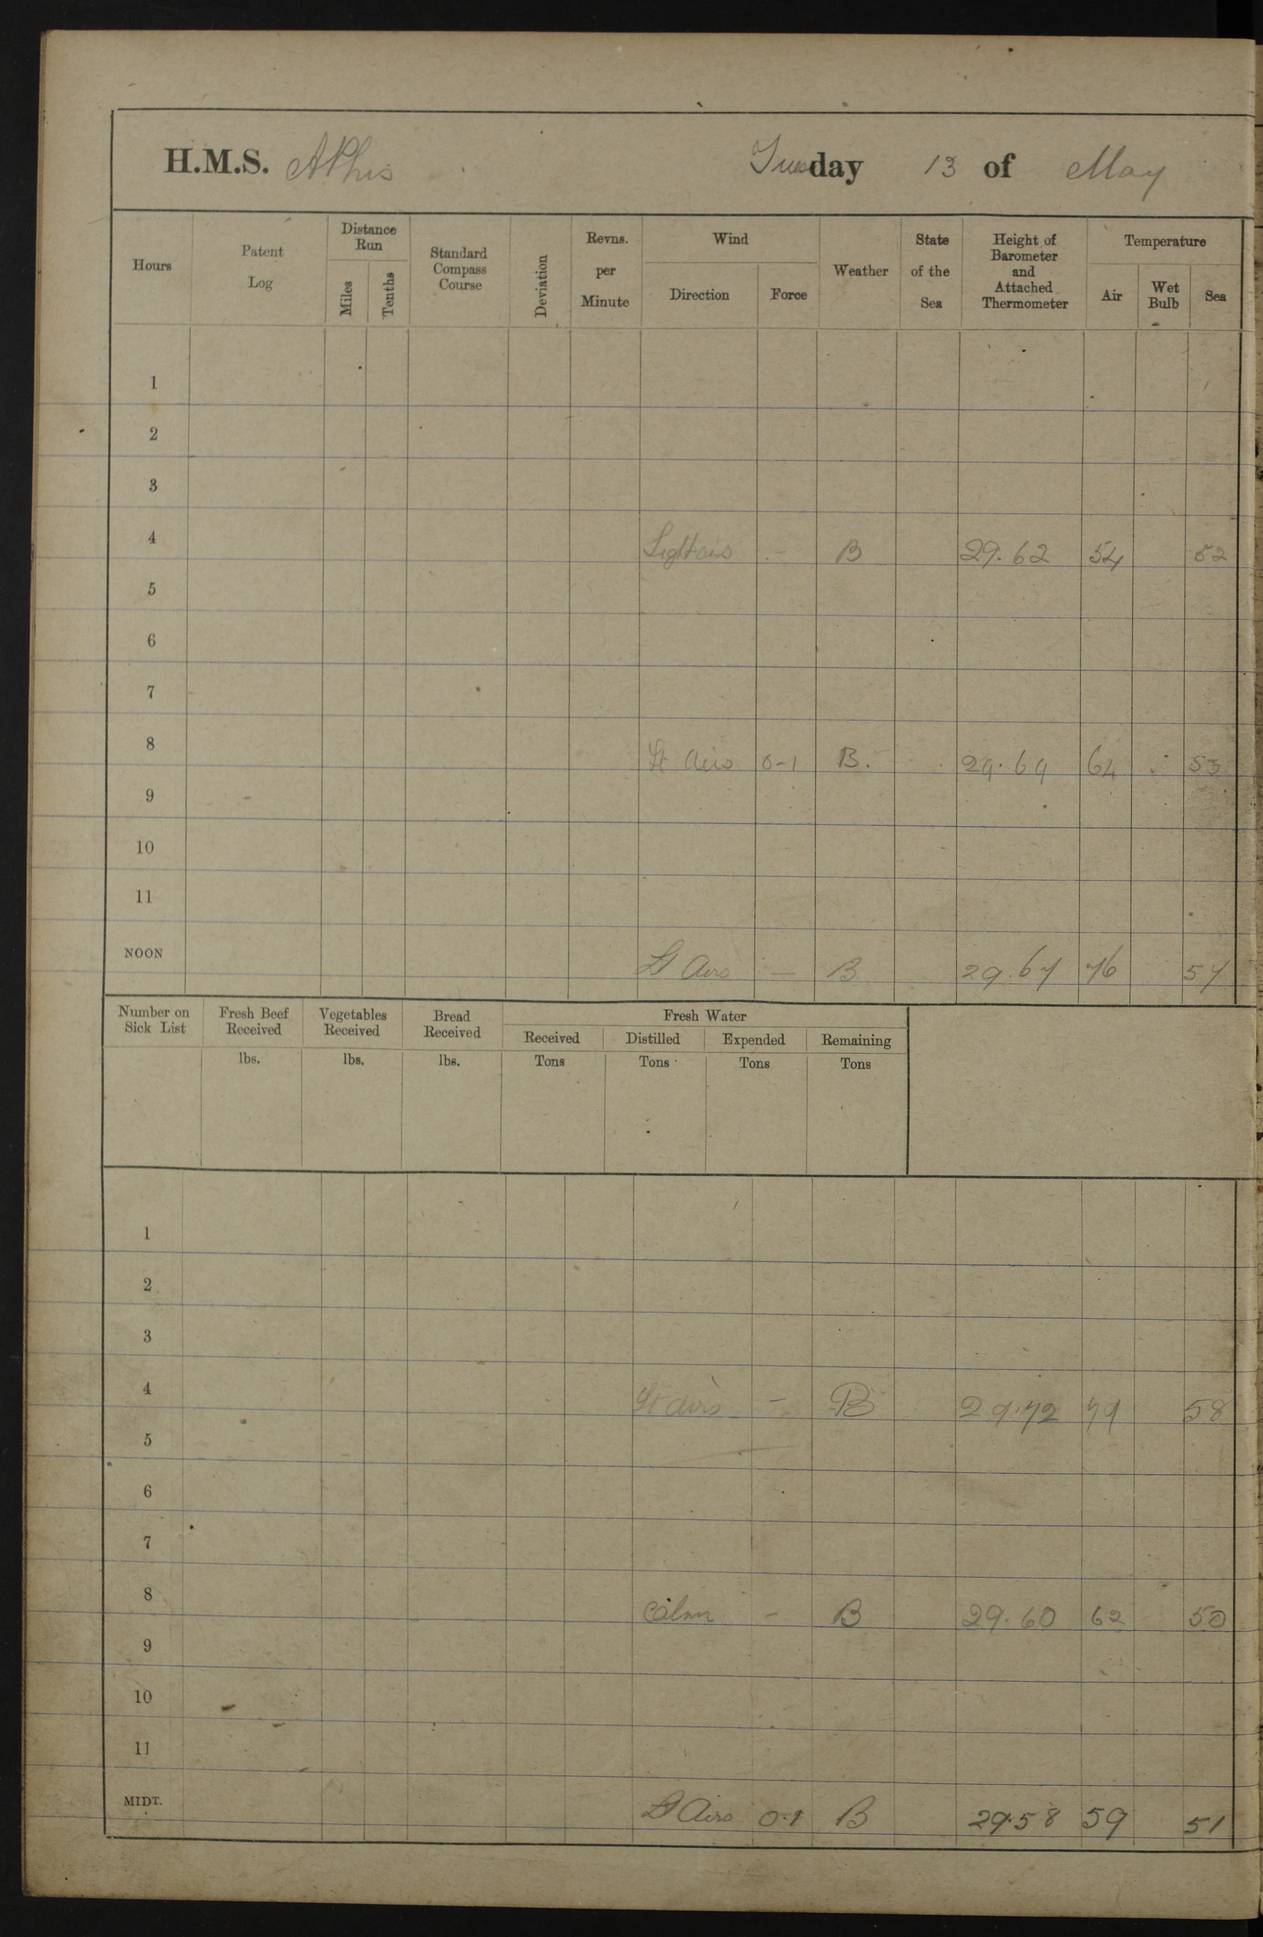 H.M.S. APhis Tuesday 13 of May
Hours Patent Log Distance Run Miles Tenths Standard Compass Course Deviation Revns. per Minute Wind Direction Force Weather State of the Sea Height of Barometer and Attached Thermometer Temperature Air Wet Bulb Sea
1
2
3
4 Light airs - B 29.62 54 52
5
6
7
8 Lt airs 0-1 B. 29.69 64 53
9
10
11
NOON Lt Airs - B 29.67 76 57
Number on Sick List Fresh Beef Received Vegetables Received Bread Received Fresh Water
Received Distilled Expended Remaining
lbs. lbs. lbs. Tons Tons Tons Tons
1
2
3
4 Lt airs - B 29.72 79 58
5
6
7
8 Calm - B 29.60 62 50
9
10
11
MIDT. Lt Airs 0-1 B 29.58 59 51